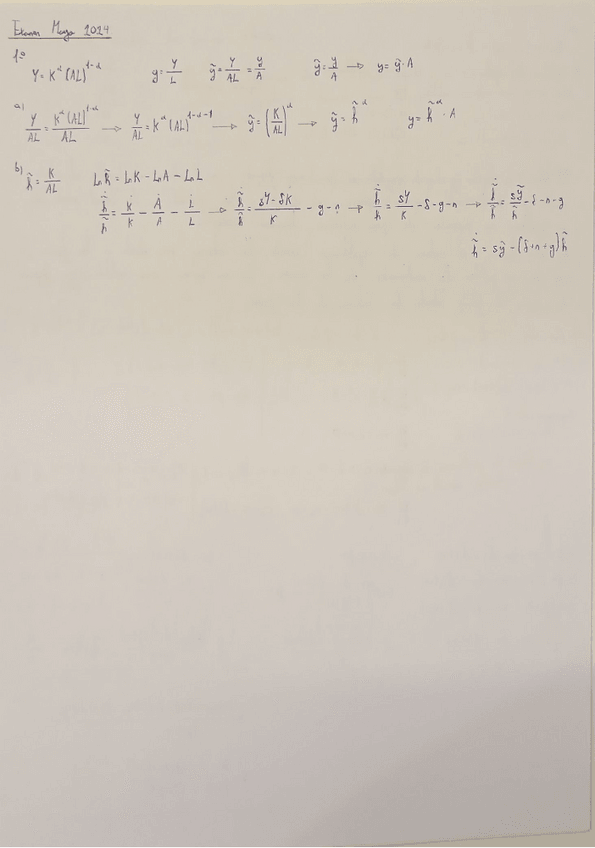 Examen Mayo 2024
1.º
Y = K^α (AL)^{1-α}   y = Y/L   ỹ = Y/AL = y/A   ỹ = y/A → y = ỹ · A
a) Y/AL = K^α (AL)^{1-α}/AL → Y/AL = K^α (AL)^{1-α-1} → ỹ = (K/AL)^α → ỹ = k̃^α   y = k̃^α · A
b) k̃ = K/AL   Ln k̃ = Ln K - Ln A - Ln L
k̃̇/k̃ = K̇/K - Ȧ/A - L̇/L → k̃̇/k̃ = (sY - δK)/K - g - n → k̃̇/k̃ = sY/K - δ - g - n → k̃̇/k̃ = sỹ/k̃ - δ - n - g
k̃̇ = sỹ - (δ + n + g) k̃